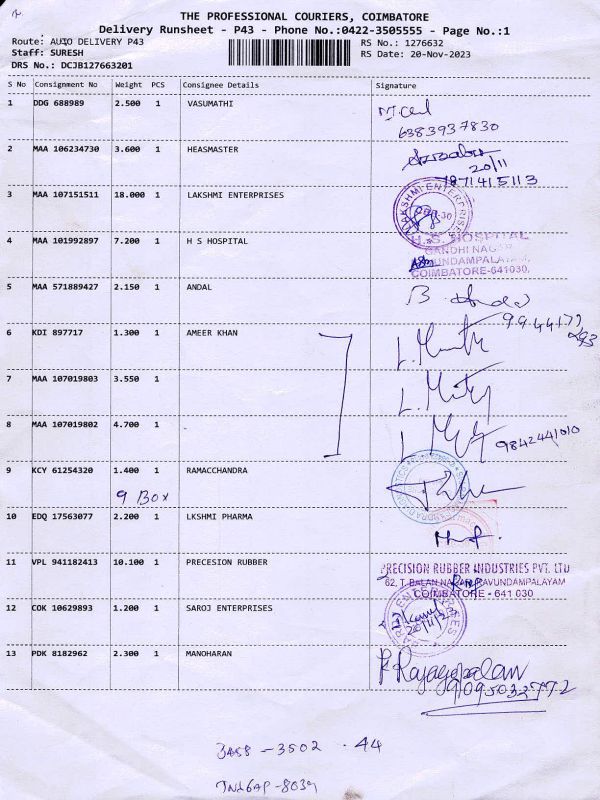 THE PROFESSIONAL COURIERS, COIMBATORE
Delivery Runsheet - P43 - Phone No.:0422-3505555 - Page No.:1
Route: AUTO DELIVERY P43 RS No.: 1276632
Staff: SURESH RS Date: 20-Nov-2023
DRS No.: DCJB127663201
S No Consignment No Weight PCS Consignee Details Signature
1 DDG 688989 2.500 1 VASUMATHI
6383937830
2 MAA 106234730 3.600 1 HEASMASTER
20/11
7871415113
3 MAA 107151511 18.000 1 LAKSHMI ENTERPRISES
LAKSHMI ENTERPRISES
4 MAA 101992897 7.200 1 H S HOSPITAL
H.S. HOSPITAL
GANDHI NAGAR
COIMBATORE-641030.
5 MAA 571889427 2.150 1 ANDAL
B.
6 KDI 897717 1.300 1 AMEER KHAN
7 MAA 107019803 3.550 1
8 MAA 107019802 4.700 1
9842441010
9 KCY 61254320 1.400 1 RAMACCHANDRA
9 Box
10 EDQ 17563077 2.200 1 LKSHMI PHARMA
11 VPL 941182413 10.100 1 PRECESION RUBBER
PRECISION RUBBER INDUSTRIES PVT. LTD
62, T. BALAN NAGAR, RAVUNDAMPALAYAM
COIMBATORE - 641 030
12 COK 10629893 1.200 1 SAROJ ENTERPRISES
20/11/23
13 PDK 8182962 2.300 1 MANOHARAN
R Rajagopalan
9095032772
3458 - 3502 . 44